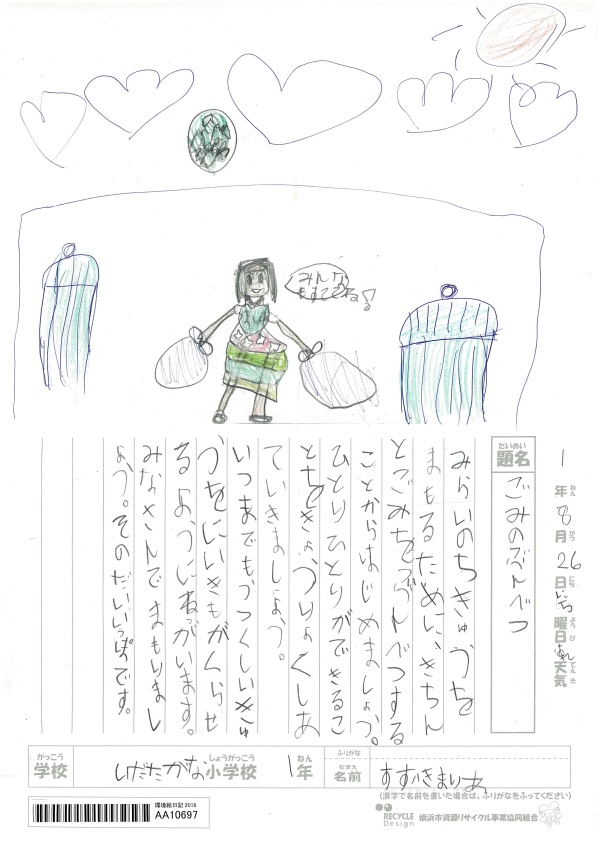 みんな
もすててね!
1年ねん8月がつ26日にちにち曜日ようびはれ天気てんき
だいめい
題名
ごみのぶんべつ
みらいのちきゅうを
まもるために、きちん
とごみをぶんべつする
ことからはじめましょう。
ひとりひとりができるこ
とをきょうりょくしあ
ていきましょう。
いつまでもうつくしいきゅ
うをにいきもがくらせ
るようにねがいます。
みなさんでまもりまし
ょう。そのだいいっぽです。
がっこう
学校
しょうがっこう
小学校
1年ねん
ふりがな
なまえ
名前
すずきまりあ
(漢字で名前を書いた場合は、ふりがなをふってください)
環境絵日記 2018
AA10697
RECYCLE Design
横浜市資源リサイクル事業協同組合